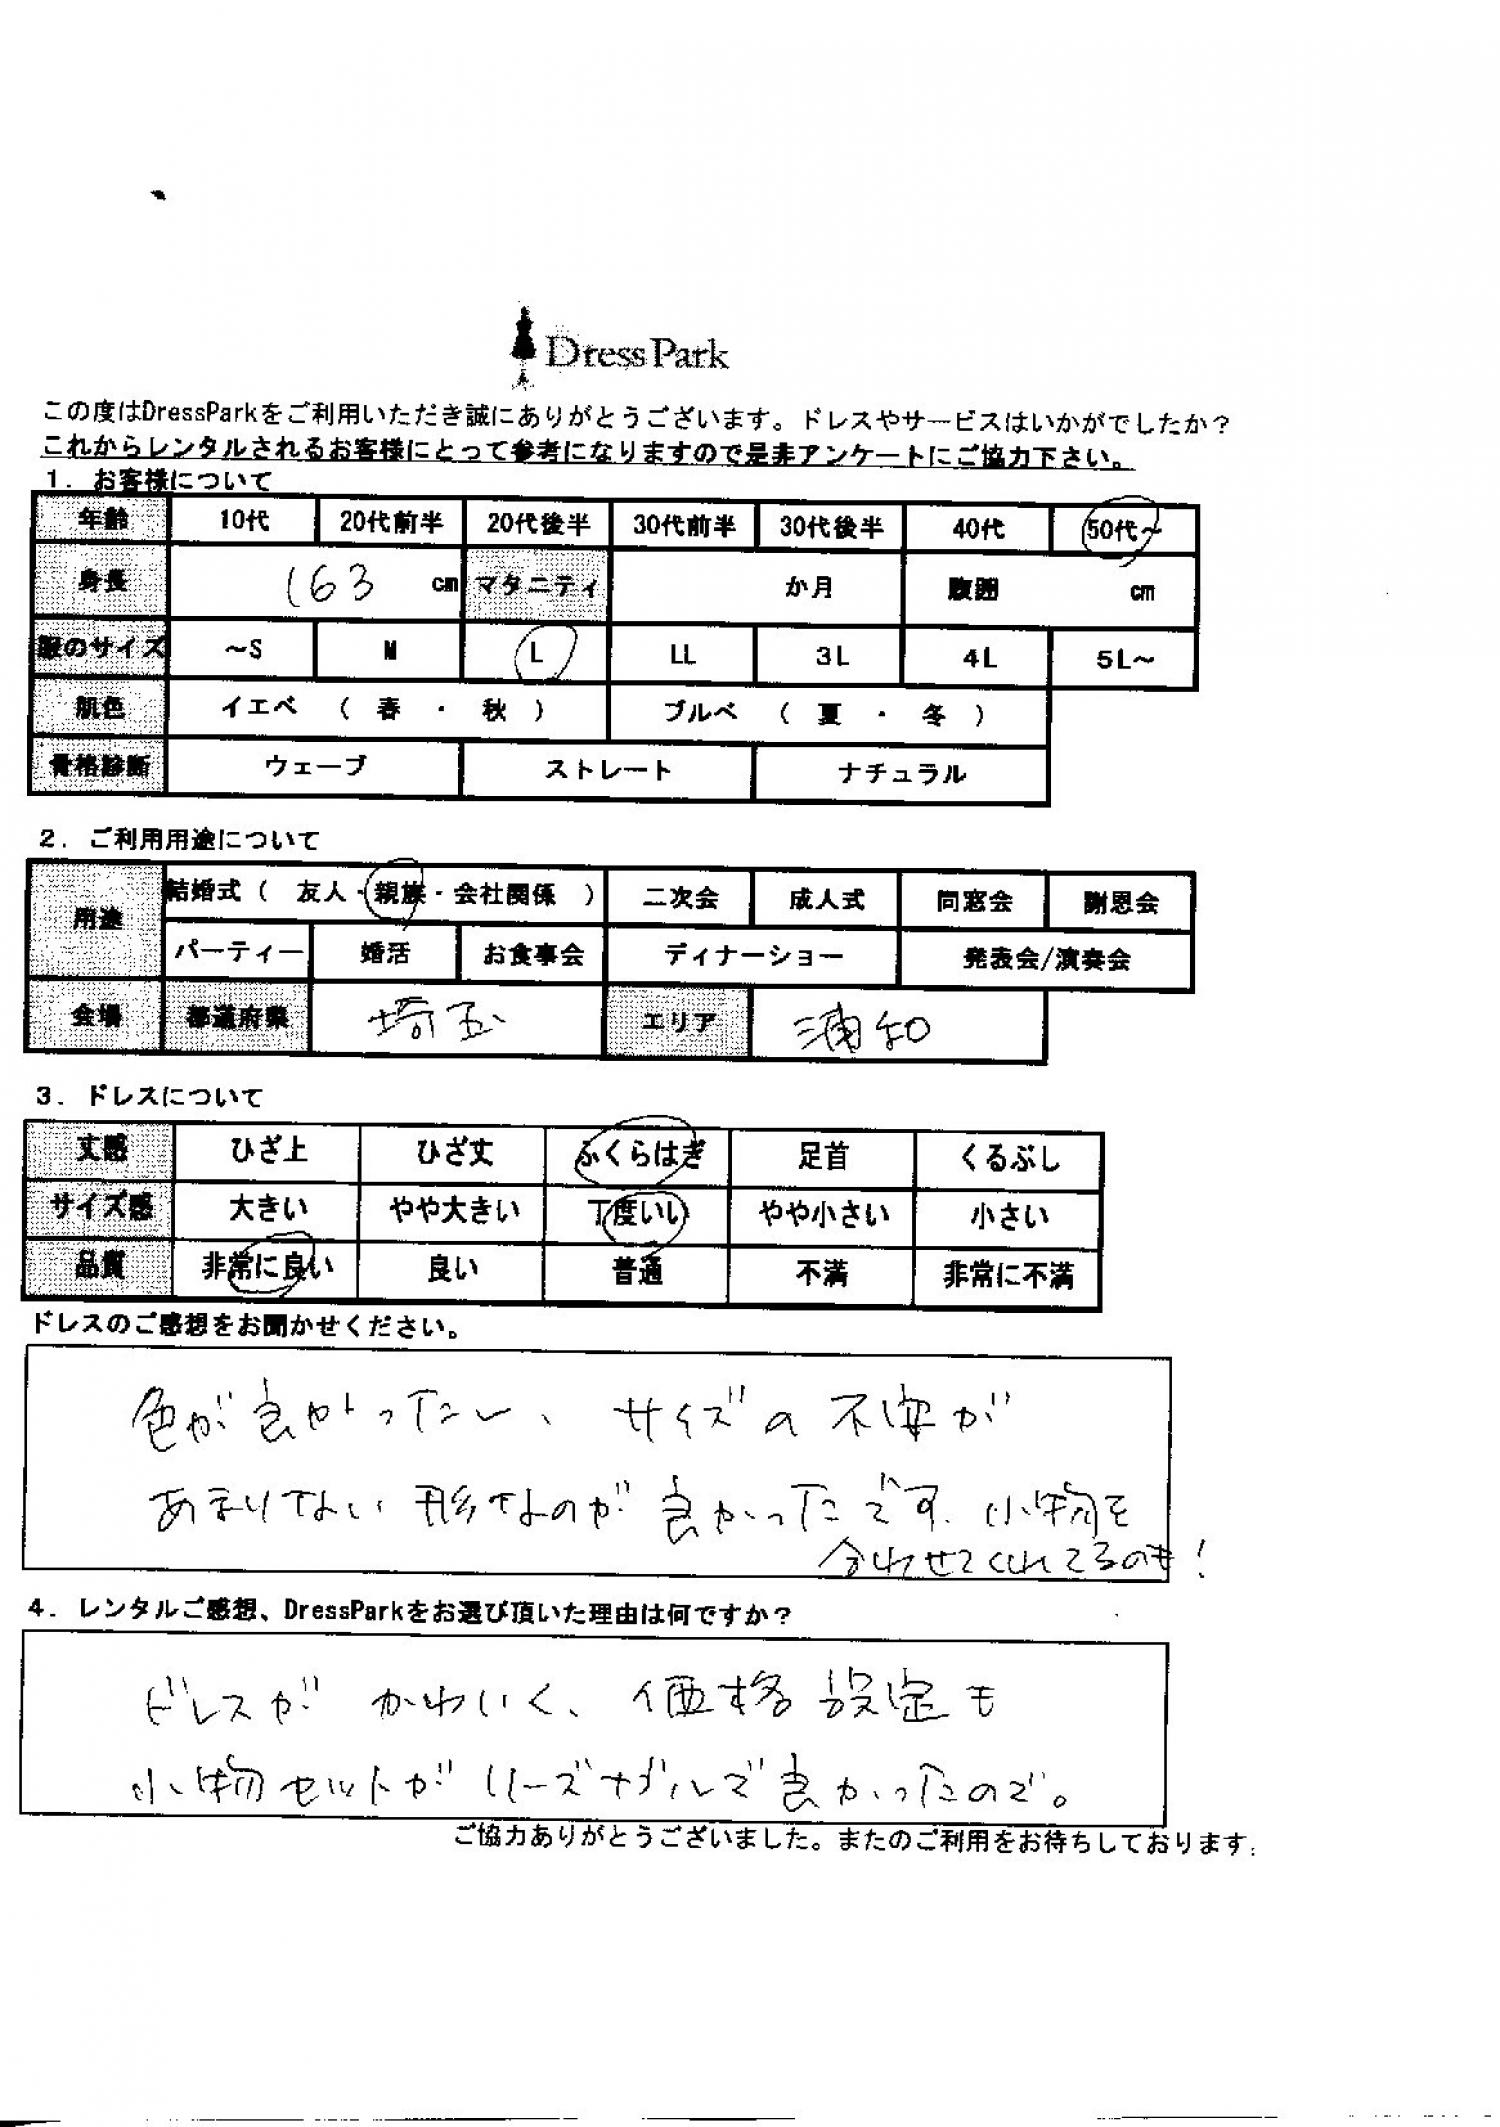 DressPark
この度はDressParkをご利用いただき誠にありがとうございます。ドレスやサービスはいかがでしたか？
これからレンタルされるお客様にとって参考になりますので是非アンケートにご協力下さい。
1．お客様について
年齢 10代 20代前半 20代後半 30代前半 30代後半 40代 50代～
身長 163 cm マタニティ か月 腹囲 cm
服のサイズ ～S M L LL 3L 4L 5L～
肌色 イエベ （ 春 ・ 秋 ） ブルベ （ 夏 ・ 冬 ）
骨格診断 ウェーブ ストレート ナチュラル
2．ご利用用途について
用途 結婚式（ 友人・親族・会社関係 ） 二次会 成人式 同窓会 謝恩会
パーティー 婚活 お食事会 ディナーショー 発表会/演奏会
会場 都道府県 埼玉 エリア 浦和
3．ドレスについて
丈感 ひざ上 ひざ丈 ふくらはぎ 足首 くるぶし
サイズ感 大きい やや大きい 丁度いい やや小さい 小さい
品質 非常に良い 良い 普通 不満 非常に不満
ドレスのご感想をお聞かせください。
色が良かったし、サイズの不安が
あまりない形なのが良かったです。小物を
合わせてくれてるのも！
4．レンタルご感想、DressParkをお選び頂いた理由は何ですか？
ドレスがかわいく、価格設定も
小物セットがリーズナブルで良かったので。
ご協力ありがとうございました。またのご利用をお待ちしております。